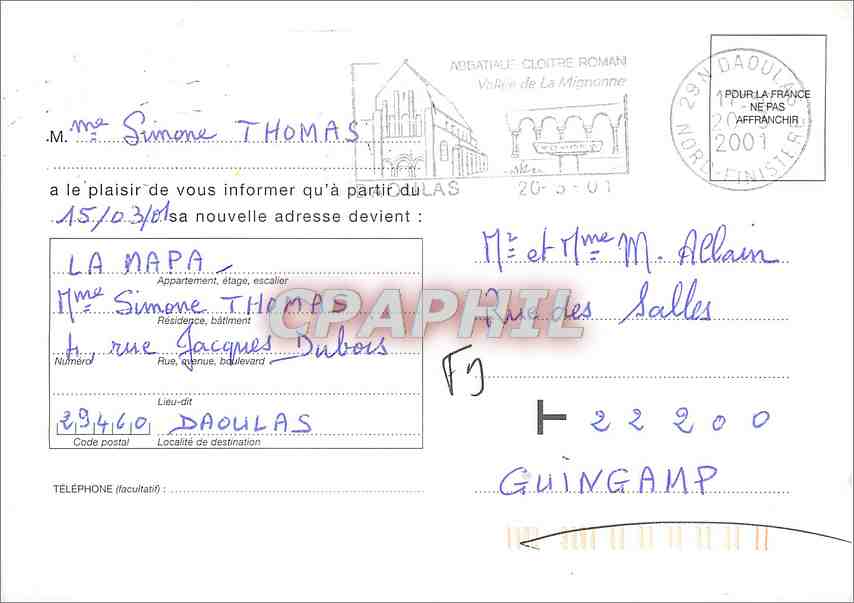 ABBATIALE CLOITRE ROMAN
Vallée de La Mignonne
DAOULAS
20-3-01
29N DAOULAS
2001
NORD-FINISTERE
POUR LA FRANCE
NE PAS
AFFRANCHIR
M. me Simone THOMAS
a le plaisir de vous informer qu'à partir du
15/03/01 sa nouvelle adresse devient :
LA MAPA
Appartement, étage, escalier
Mme Simone THOMAS
Résidence, bâtiment
4, rue Jacques Dubois
Numéro Rue, avenue, boulevard
Lieu-dit
29460 DAOULAS
Code postal Localité de destination
TÉLÉPHONE (facultatif) :
Mr et Mme M. Allain
Rue des Salles
T 22200
GUINGAMP
CPAPHIL